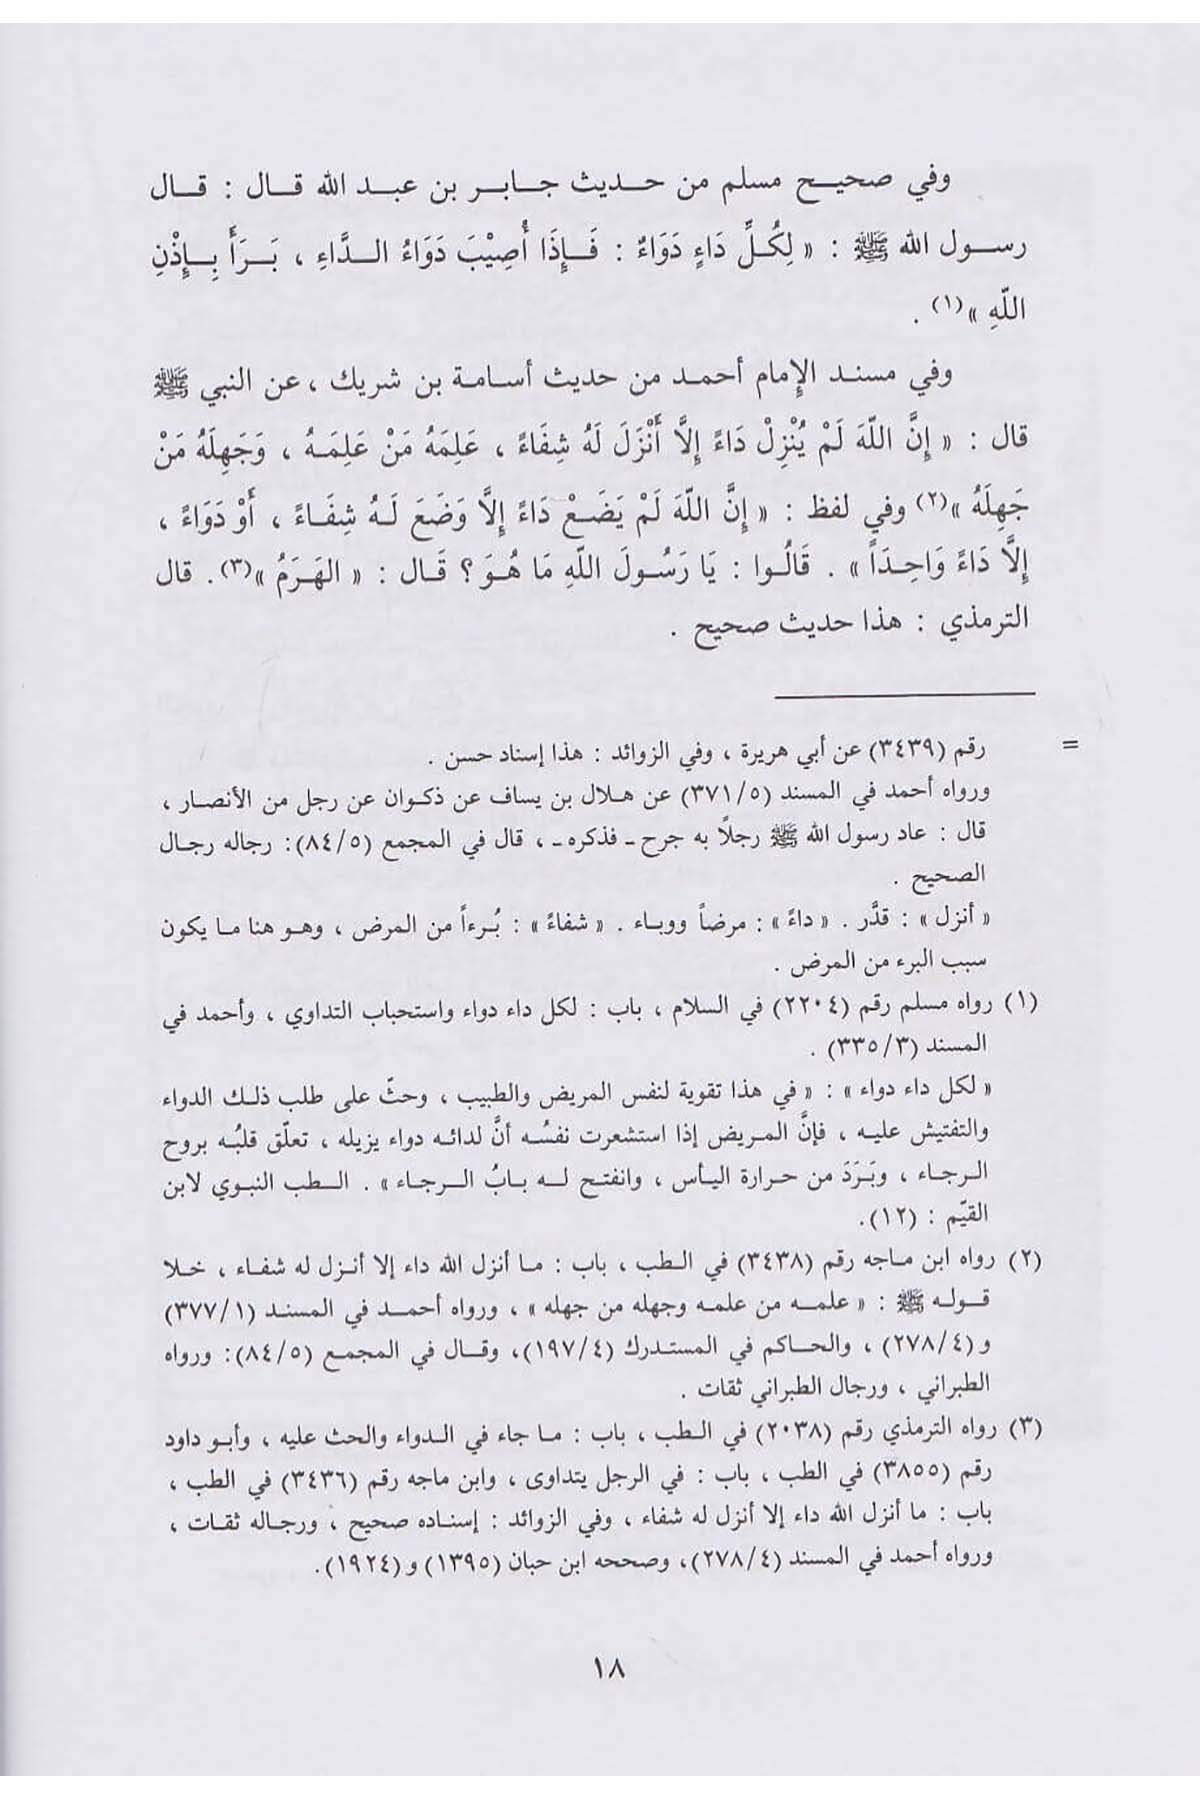 وفي صحيح مسلم من حديث جابر بن عبد الله قال : قال
رسول الله ﷺ : « لِكُلِّ دَاءٍ دَوَاءٌ : فَإِذَا أُصِيْبَ دَوَاءُ الدَّاءِ ، بَرَأَ بِإِذْنِ
اللَّهِ »(١) .
وفي مسند الإِمام أحمد من حديث أسامة بن شريك ، عن النبي ﷺ
قال : « إِنَّ اللَّهَ لَمْ يُنْزِلْ دَاءً إِلَّا أَنْزَلَ لَهُ شِفَاءً ، عَلِمَهُ مَنْ عَلِمَهُ ، وَجَهِلَهُ مَنْ
جَهِلَهُ »(٢) وفي لفظ : « إِنَّ اللَّهَ لَمْ يَضَعْ دَاءً إِلَّا وَضَعَ لَهُ شِفَاءً ، أَوْ دَوَاءً ،
إِلَّا دَاءً وَاحِدَاً » . قَالُوا : يَا رَسُولَ اللَّهِ مَا هُوَ ؟ قَال : « الهَرَمُ »(٣). قال
الترمذي : هذا حديث صحيح .
= رقم (٣٤٣٩) عن أبي هريرة ، وفي الزوائد : هذا إسناد حسن .
ورواه أحمد في المسند (٣٧١/٥) عن هلال بن يساف عن ذكوان عن رجل من الأنصار ،
قال : عاد رسول الله ﷺ رجلاً به جرح ـ فذكره ـ ، قال في المجمع (٨٤/٥): رجاله رجال
الصحيح .
« أنزل » : قدَّر . « داءً » : مرضاً ووباء . « شفاءً » : بُرءاً من المرض ، وهو هنا ما يكون
سبب البرء من المرض .
(١) رواه مسلم رقم (٢٢٠٤) في السلام ، باب : لكل داء دواء واستحباب التداوي ، وأحمد في
المسند (٣٣٥/٣) .
« لكل داء دواء » : « في هذا تقوية لنفس المريض والطبيب ، وحثّ على طلب ذلك الدواء
والتفتيش عليه ، فإنَّ المريض إذا استشعرت نفسُه أنَّ لدائه دواء يزيله ، تعلّق قلبُه بروح
الرجاء ، وبَرَدَ من حرارة اليأس ، وانفتح له بابُ الرجاء » . الطب النبوي لابن
القيّم : (١٢).
(٢) رواه ابن ماجه رقم (٣٤٣٨) في الطب ، باب : ما أنزل الله داء إلا أنزل له شفاء ، خلا
قوله ﷺ : « علمه من علمه وجهله من جهله » ، ورواه أحمد في المسند (٣٧٧/١)
و (٢٧٨/٤) ، والحاكم في المستدرك (١٩٧/٤)، وقال في المجمع (٨٤/٥): ورواه
الطبراني ، ورجال الطبراني ثقات .
(٣) رواه الترمذي رقم (٢٠٣٨) في الطب ، باب : ما جاء في الدواء والحث عليه ، وأبو داود
رقم (٣٨٥٥) في الطب ، باب : في الرجل يتداوى ، وابن ماجه رقم (٣٤٣٦) في الطب ،
باب : ما أنزل الله داء إلا أنزل له شفاء ، وفي الزوائد : إسناده صحيح ، ورجاله ثقات ،
ورواه أحمد في المسند (٢٧٨/٤)، وصححه ابن حبان (١٣٩٥) و (١٩٢٤).
١٨